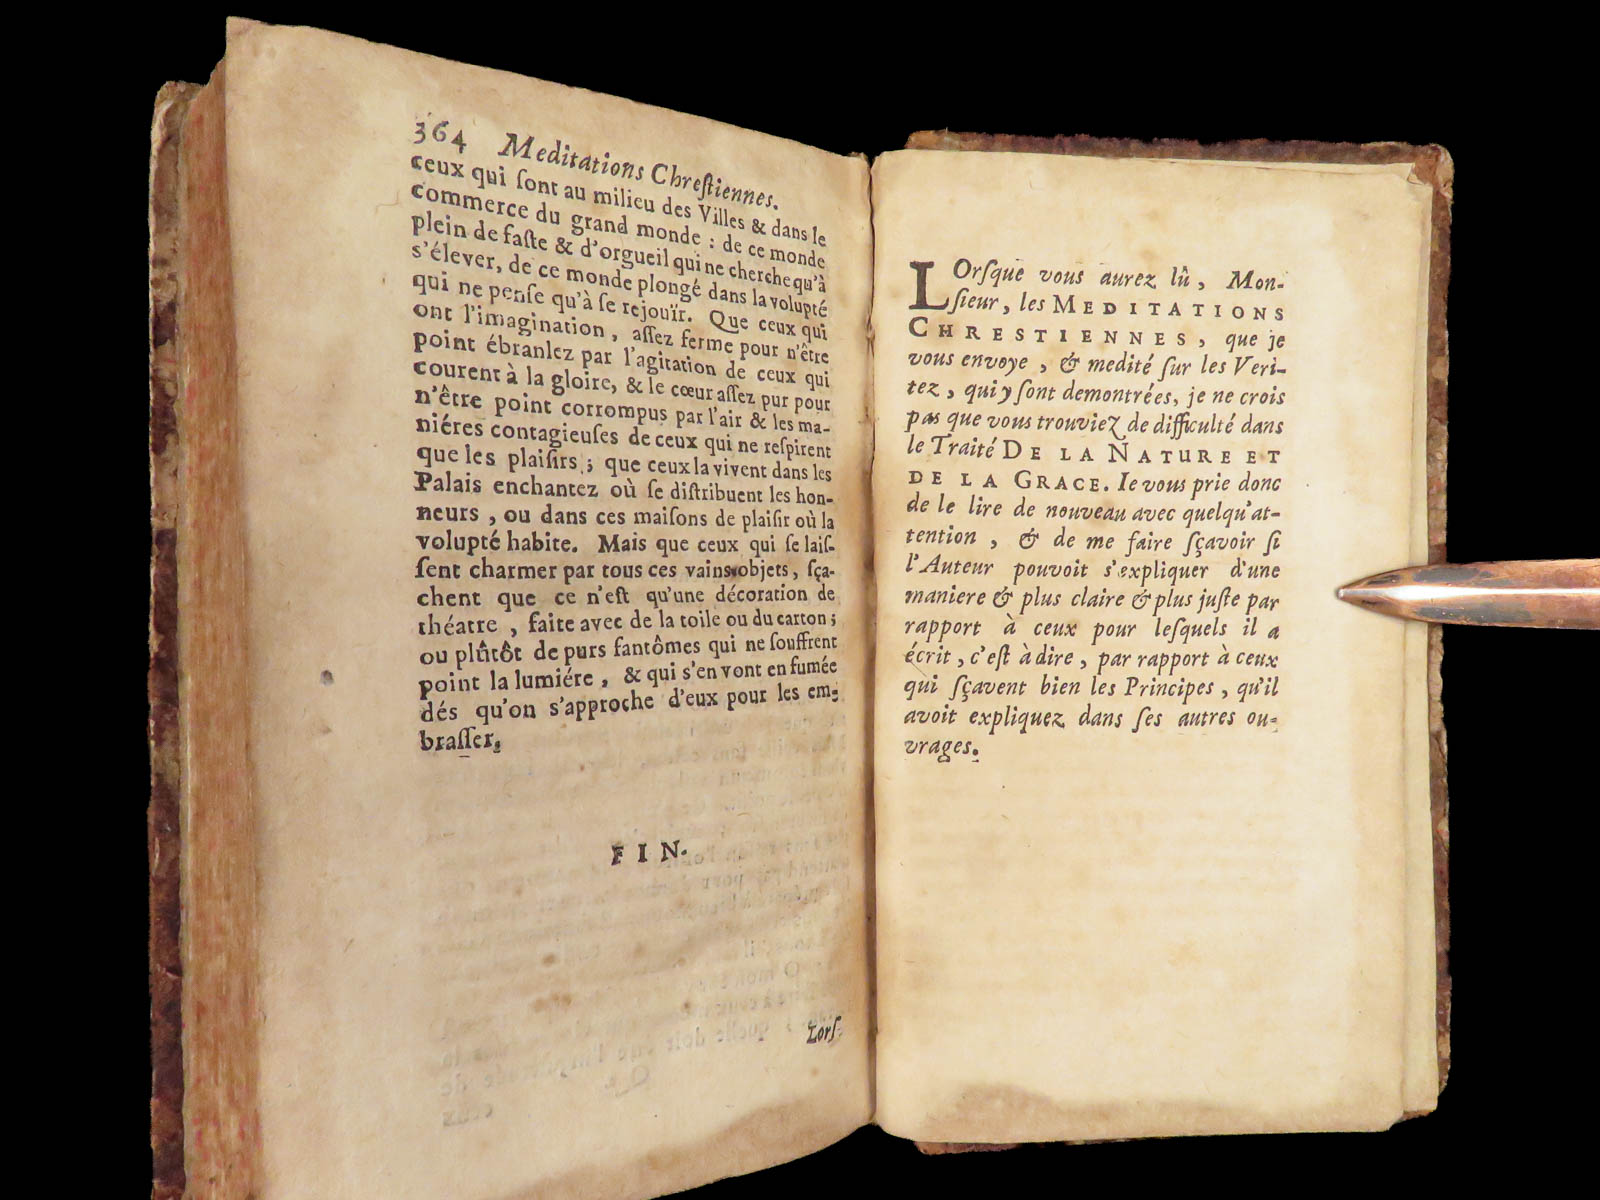 364 Meditations Chreſtiennes.
ceux qui ſont au milieu des Villes & dans le
commerce du grand monde : de ce monde
plein de faſte & d'orgueil qui ne cherche qu'à
s'élever, de ce monde plongé dans la volupté
qui ne penſe qu'à ſe rejouïr. Que ceux qui
ont l'imagination, aſſez ferme pour n'être
point ébranlez par l'agitation de ceux qui
courent à la gloire, & le cœur aſſez pur pour
n'être point corrompus par l'air & les ma-
niéres contagieuſes de ceux qui ne reſpirent
que les plaiſirs ; que ceux la vivent dans les
Palais enchantez où ſe diſtribuent les hon-
neurs, ou dans ces maiſons de plaiſir où la
volupté habite. Mais que ceux qui ſe laiſ-
ſent charmer par tous ces vains objets, ſça-
chent que ce n'eſt qu'une décoration de
théatre, faite avec de la toile ou du carton ;
ou plûtôt de purs fantômes qui ne ſouffrent
point la lumiére, & qui s'en vont en fumée
dés qu'on s'approche d'eux pour les em-
braſſer.
FIN.
Lorſ-
LOrſque vous aurez lû, Mon-
ſieur, les MEDITATIONS
CHRESTIENNES, que je
vous envoye, & medité ſur les Veri-
tez, qui y ſont demontrées, je ne crois
pas que vous trouviez de difficulté dans
le Traité DE LA NATURE ET
DE LA GRACE. Ie vous prie donc
de le lire de nouveau avec quelqu'at-
tention, & de me faire ſçavoir ſi
l'Auteur pouvoit s'expliquer d'une
maniere & plus claire & plus juſte par
rapport à ceux pour leſquels il a
écrit, c'eſt à dire, par rapport à ceux
qui ſçavent bien les Principes, qu'il
avoit expliquez dans ſes autres ou-
vrages.